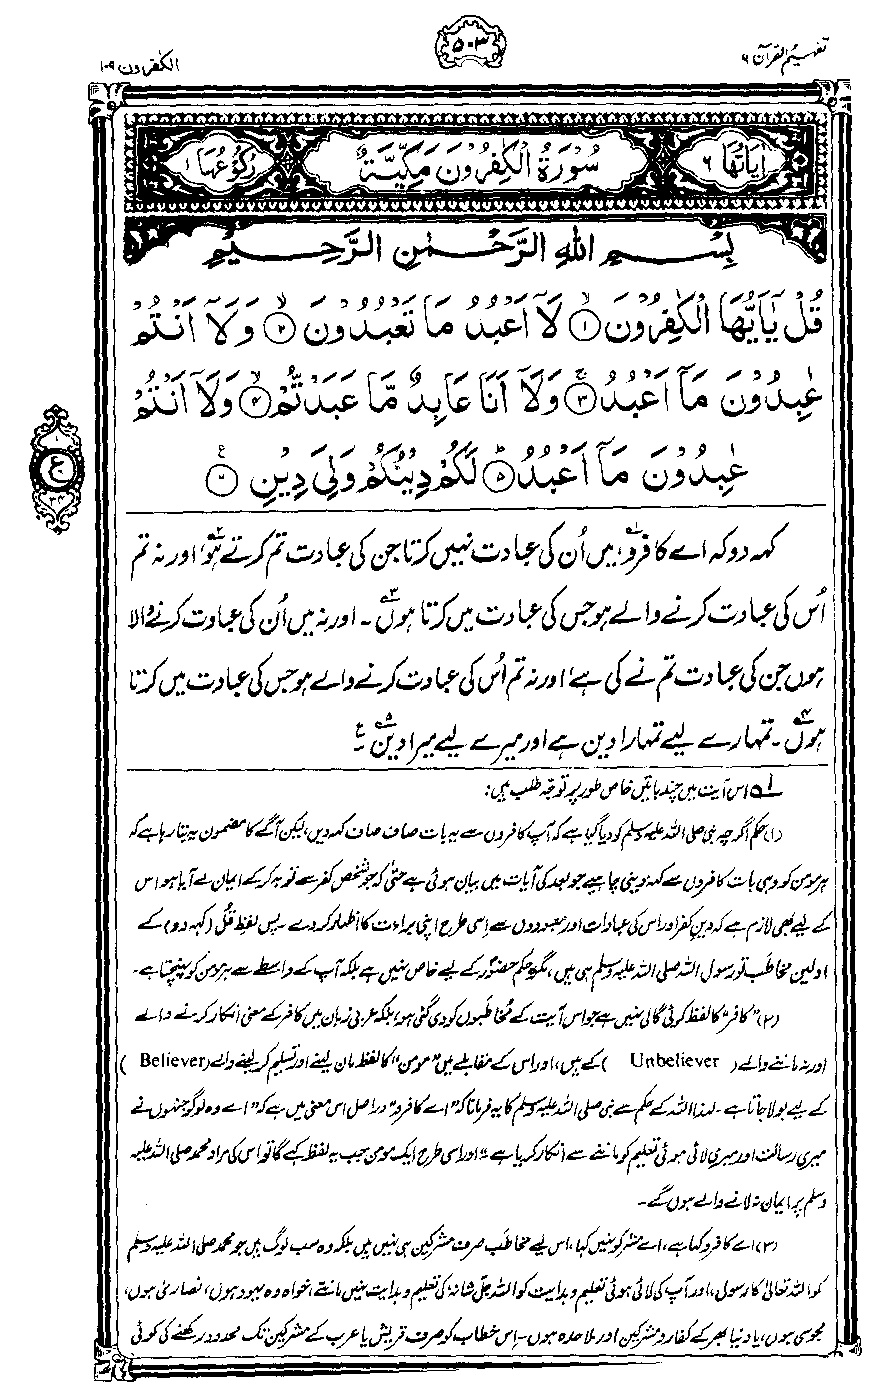 تفہیم القرآن ۶
۵۰۳
الکٰفرون ۱۰۹
اٰیَاتُهَا ۶
سُوْرَةُ الْكٰفِرُوْنَ مَكِّيَّةٌ
رُكُوْعُهَا ۱
بِسْمِ اللهِ الرَّحْمٰنِ الرَّحِيْمِ
قُلْ يٰۤاَيُّهَا الْكٰفِرُوْنَ ۙ﴿۱﴾ لَاۤ اَعْبُدُ مَا تَعْبُدُوْنَ ۙ﴿۲﴾ وَلَاۤ اَنْتُمْ
عٰبِدُوْنَ مَاۤ اَعْبُدُ ۚ﴿۳﴾ وَلَاۤ اَنَا عَابِدٌ مَّا عَبَدْتُّمْ ۙ﴿۴﴾ وَلَاۤ اَنْتُمْ
عٰبِدُوْنَ مَاۤ اَعْبُدُ ؕ﴿۵﴾ لَكُمْ دِيْنُكُمْ وَلِيَ دِيْنِ ﴿۶﴾
ع
کہہ دو کہ اے کافرو،۱؎ میں اُن کی عبادت نہیں کرتا جن کی عبادت تم کرتے ہو،۲؎ اور نہ تم
اُس کی عبادت کرنے والے ہو جس کی عبادت میں کرتا ہوں۔۳؎ اور نہ میں اُن کی عبادت کرنے والا
ہوں جن کی عبادت تم نے کی ہے، اور نہ تم اُس کی عبادت کرنے والے ہو جس کی عبادت میں کرتا
ہوں۔۴؎ تمہارے لیے تمہارا دین ہے اور میرے لیے میرا دین۔۵؎ ع
۱؎ اس آیت میں چند باتیں خاص طور پر توجہ طلب ہیں:
(۱) حکم اگرچہ نبی صلی اللہ علیہ وسلم کو دیا گیا ہے کہ آپ کافروں سے یہ بات صاف صاف کہہ دیں، لیکن آگے کا مضمون یہ بتا رہا ہے کہ
ہر مومن کو وہی بات کافروں سے کہہ دینی چاہیے جو بعد کی آیات میں بیان ہوئی ہے حتیٰ کہ جو شخص کفر سے توبہ کر کے ایمان لے آیا ہو اس
کے لیے بھی لازم ہے کہ دینِ کفر اور اس کی عبادات اور معبودوں سے اِسی طرح اپنی براءت کا اظہار کر دے۔ پس لفظ قُل (کہہ دو) کے
اولین مخاطَب تو رسول اللہ صلی اللہ علیہ وسلم ہی ہیں، مگر حکم حضورؐ کے لیے خاص نہیں ہے بلکہ آپ کے واسطے سے ہر مومن کو پہنچتا ہے۔
(۲) "کافر" کا لفظ کوئی گالی نہیں ہے جو اس آیت کے مخاطَبوں کو دی گئی ہو، بلکہ عربی زبان میں کافر کے معنی انکار کرنے والے
اور نہ ماننے والے (Unbeliever) کے ہیں، اور اس کے مقابلے میں "مومن" کا لفظ مان لینے اور تسلیم کر لینے والے (Believer)
کے لیے بولا جاتا ہے۔ لہٰذا اللہ کے حکم سے نبی صلی اللہ علیہ وسلم کا یہ فرمانا کہ "اے کافرو" دراصل اس معنی میں ہے کہ "اے وہ لوگو جنہوں نے
میری رسالت اور میری لائی ہوئی تعلیم کو ماننے سے انکار کر دیا ہے"، اور اسی طرح ایک مومن جب یہ لفظ کہے گا تو اس کی مراد محمد صلی اللہ علیہ
وسلم پر ایمان نہ لانے والے ہوں گے۔
(۳) اے کافرو کہا ہے، اے مشرکو نہیں کہا، اس لیے مخاطَب صرف مشرکین ہی نہیں ہیں بلکہ وہ سب لوگ ہیں جو محمد صلی اللہ علیہ وسلم
کو اللہ تعالیٰ کا رسول، اور آپ کی لائی ہوئی تعلیم و ہدایت کو اللہ جلّ شانہٗ کی تعلیم و ہدایت نہیں مانتے، خواہ وہ یہود ہوں، نصاریٰ ہوں،
مجوسی ہوں، یا دنیا بھر کے کفار و مشرکین اور ملاحدہ ہوں۔ اِس خطاب کو صرف قریش یا عرب کے مشرکین تک محدود رکھنے کی کوئی